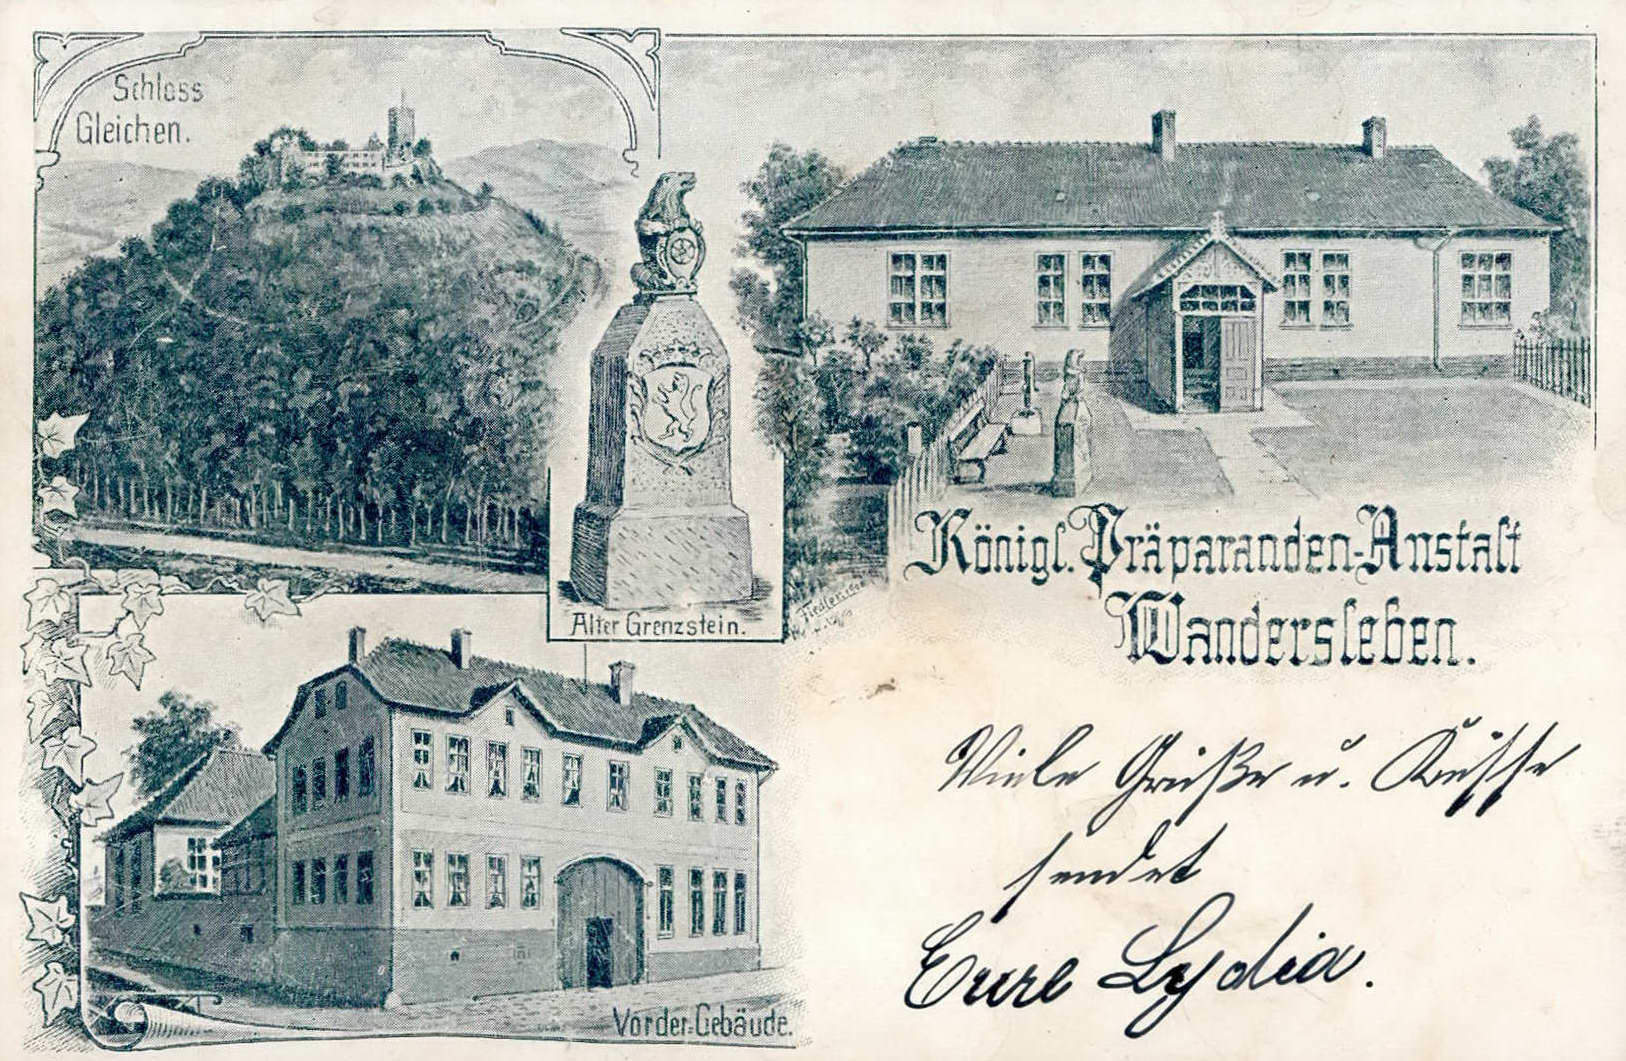 Schloss
Gleichen.
Alter Grenzstein.
Königl. Präparanden-Anstalt
Wandersleben.
Viele Grüße u. Küsse
sendet
Eure Lydia.
Vorder-Gebäude.